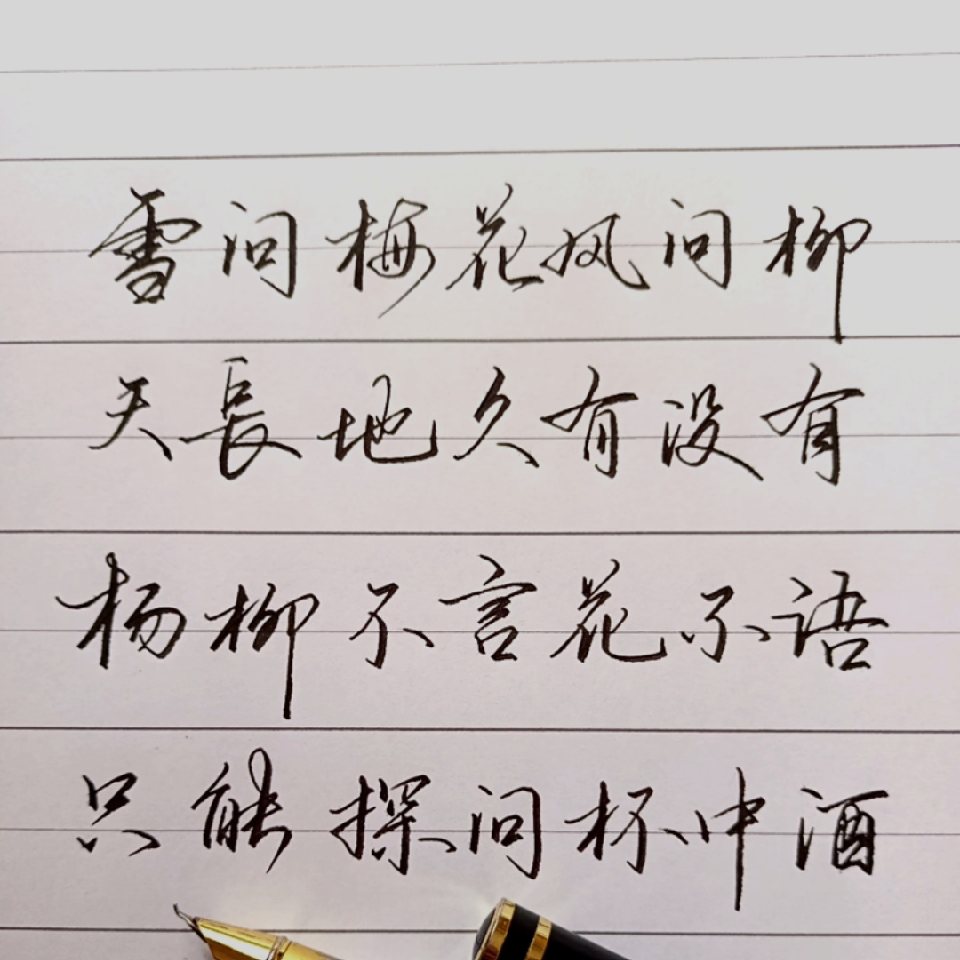 雪问梅花风问柳
天長地久有没有
杨柳不言花不语
只能探问杯中酒